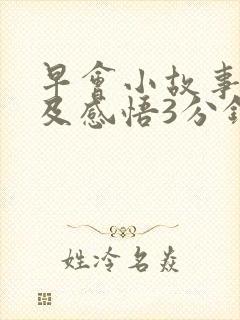 早會小故事
及感悟3分鐘
姓冷名焱